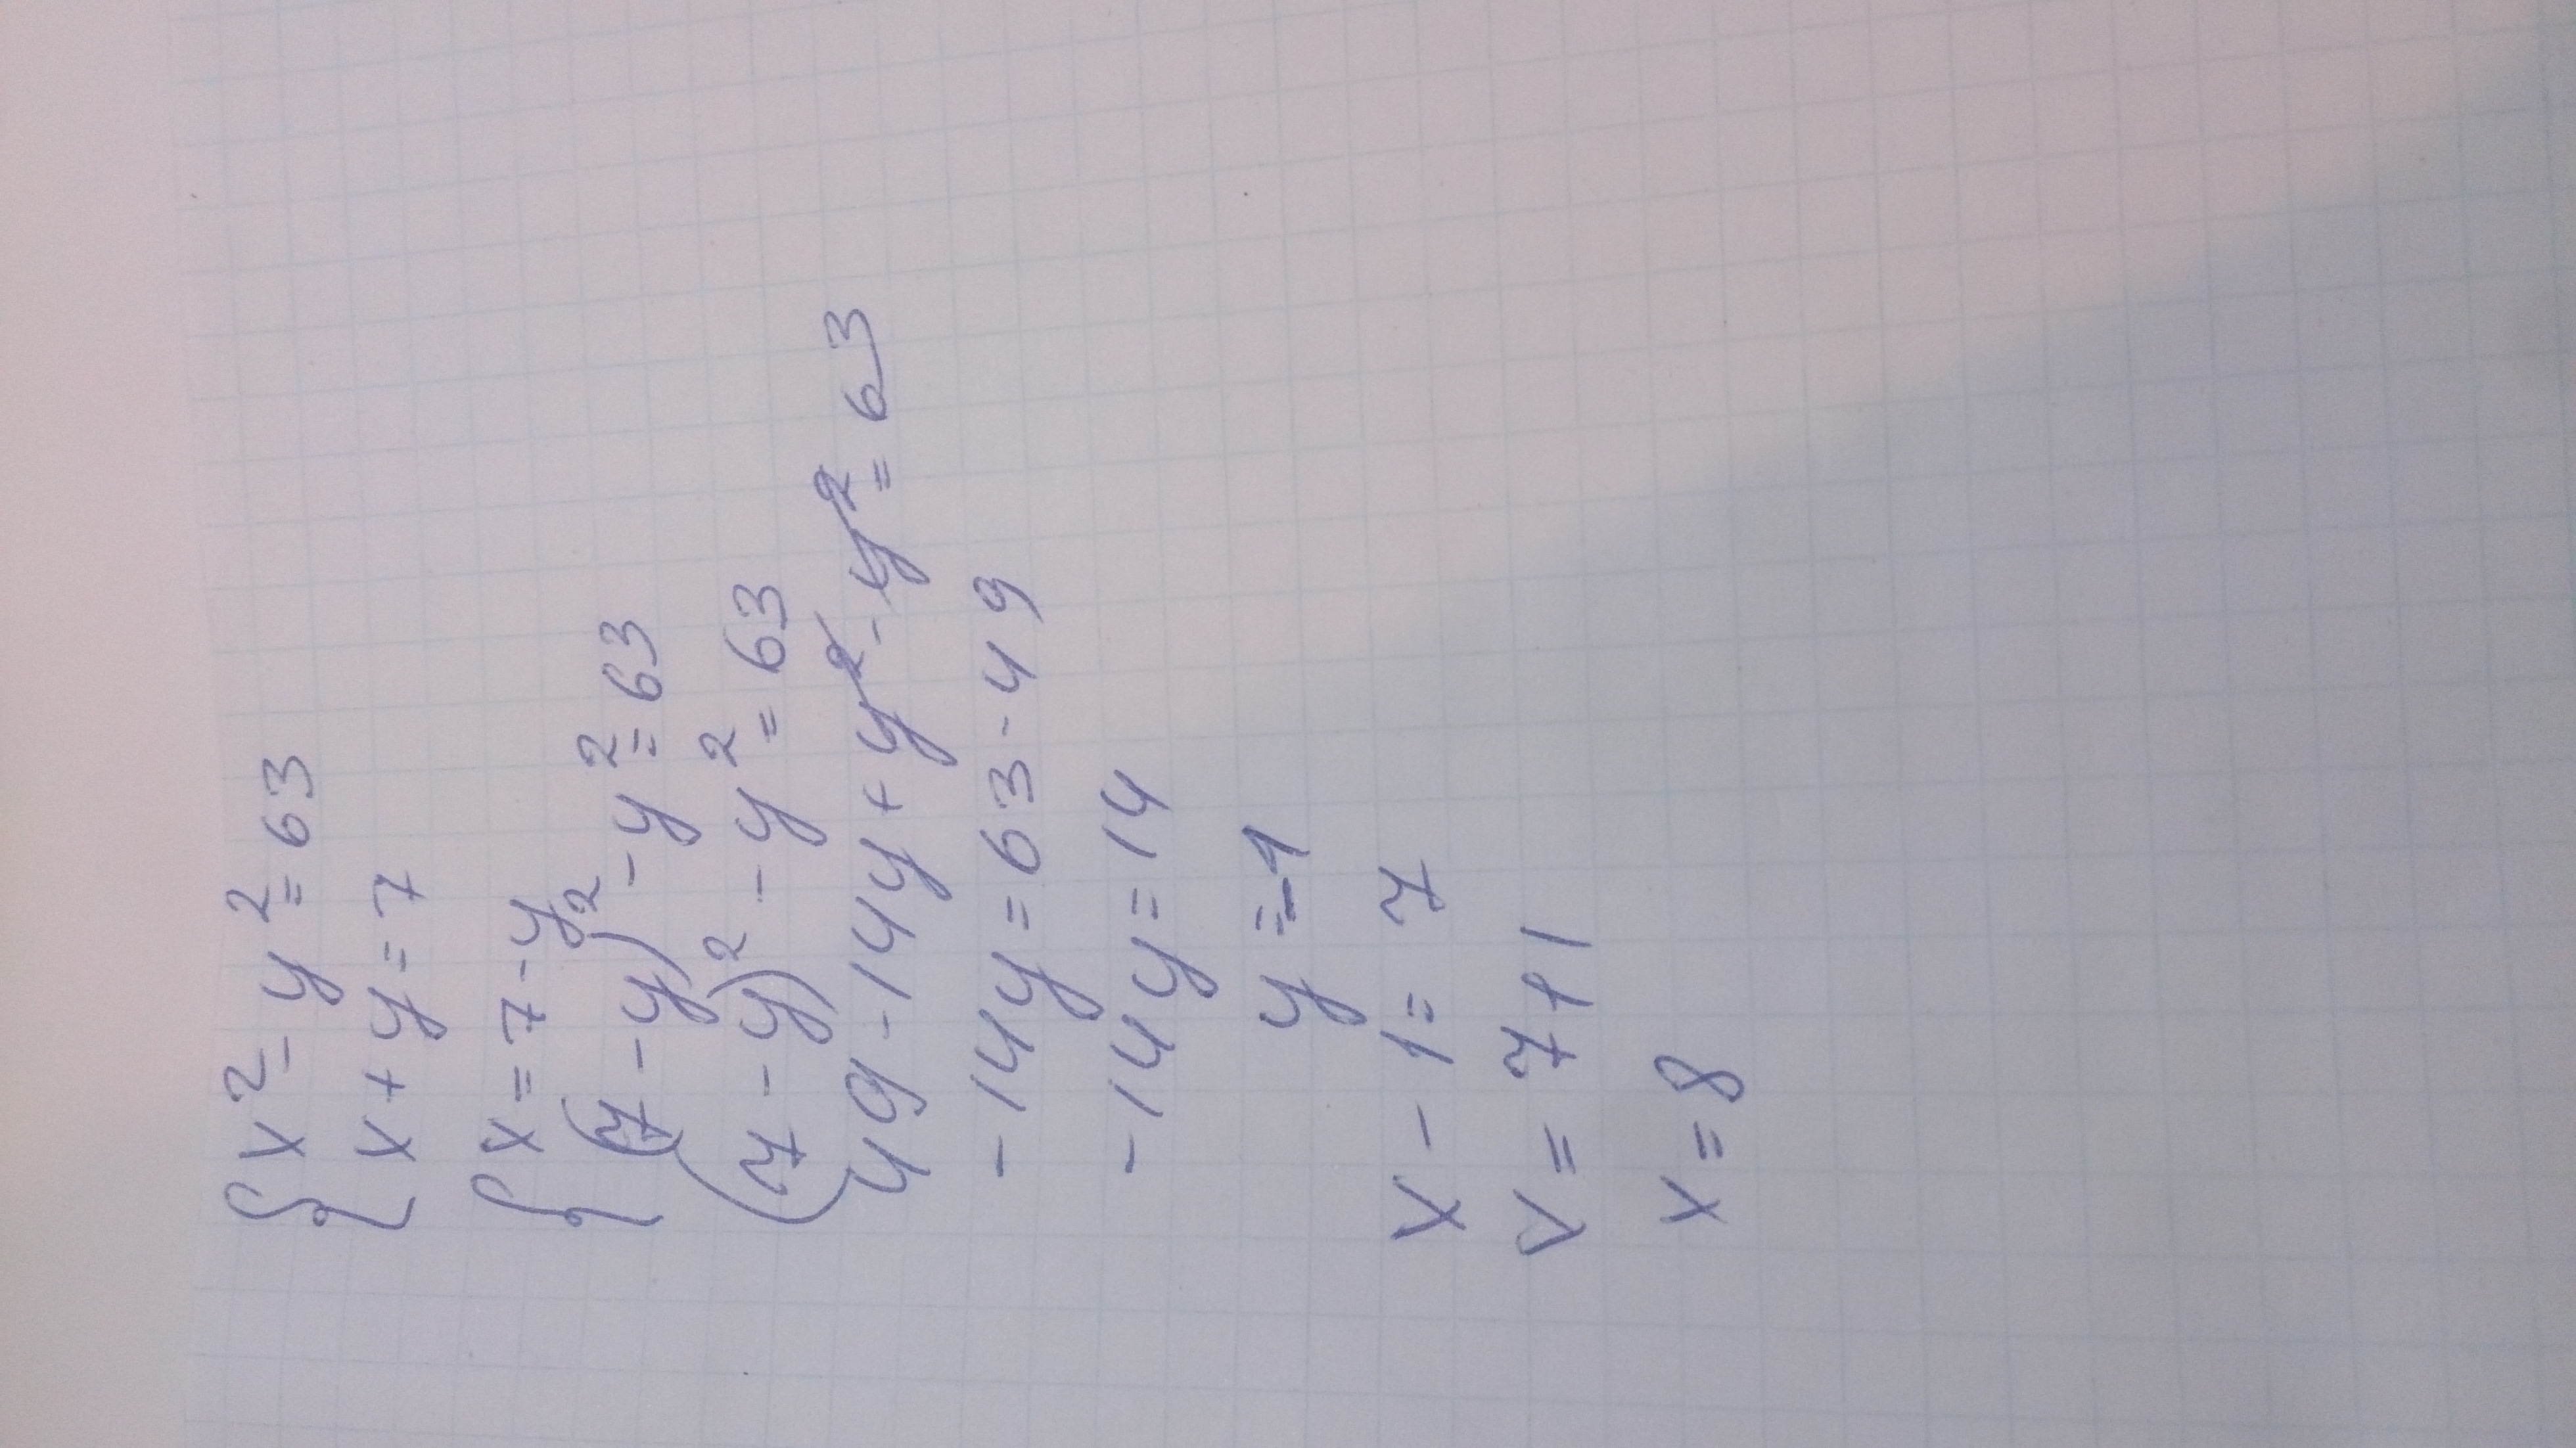 { x² - y² = 63
x + y = 7
{ x = 7 - y
(7 - y)² - y² = 63
(7 - y)² - y² = 63
49 - 14y + y² - y² = 63
- 14y = 63 - 49
- 14y = 14
y = -1
x - 1 = 7
x = 7 + 1
x = 8